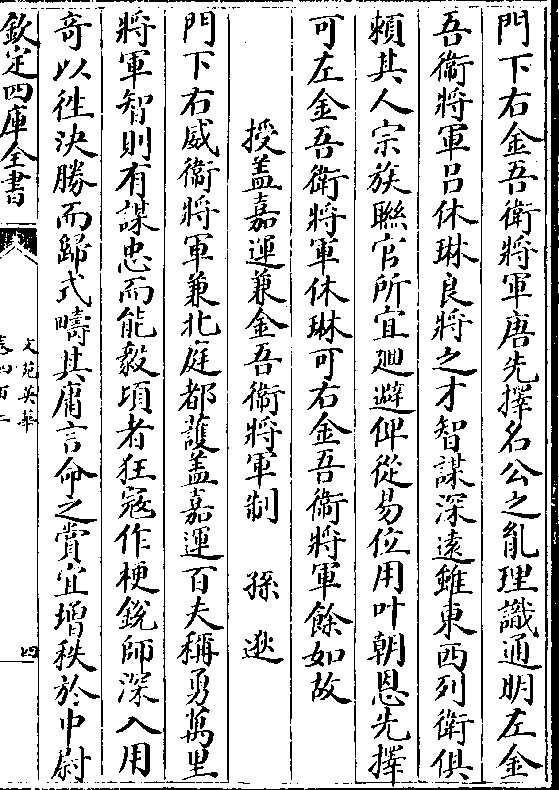 門下右金吾衛將軍唐先擇名公之胤理識通明左金
吾衛將軍呂休琳良將之才智謀深遠雖東西列衛俱
頼其人宗族聯官所宜廻避俾從易位用叶朝恩先擇
可左金吾衛將軍休琳可右金吾衛將軍餘如故
授盖嘉運兼金吾衛將軍制 孫逖
門下右威衛將軍兼北庭都護盖嘉運百夫稱勇萬里
將軍智則有謀忠而能毅頃者狂寇作梗銳師深入用
竒以徃决勝而歸式疇其庸言命之賞宜增秩於中尉
欽定四庫全書
文苑英華
卷四百二
四